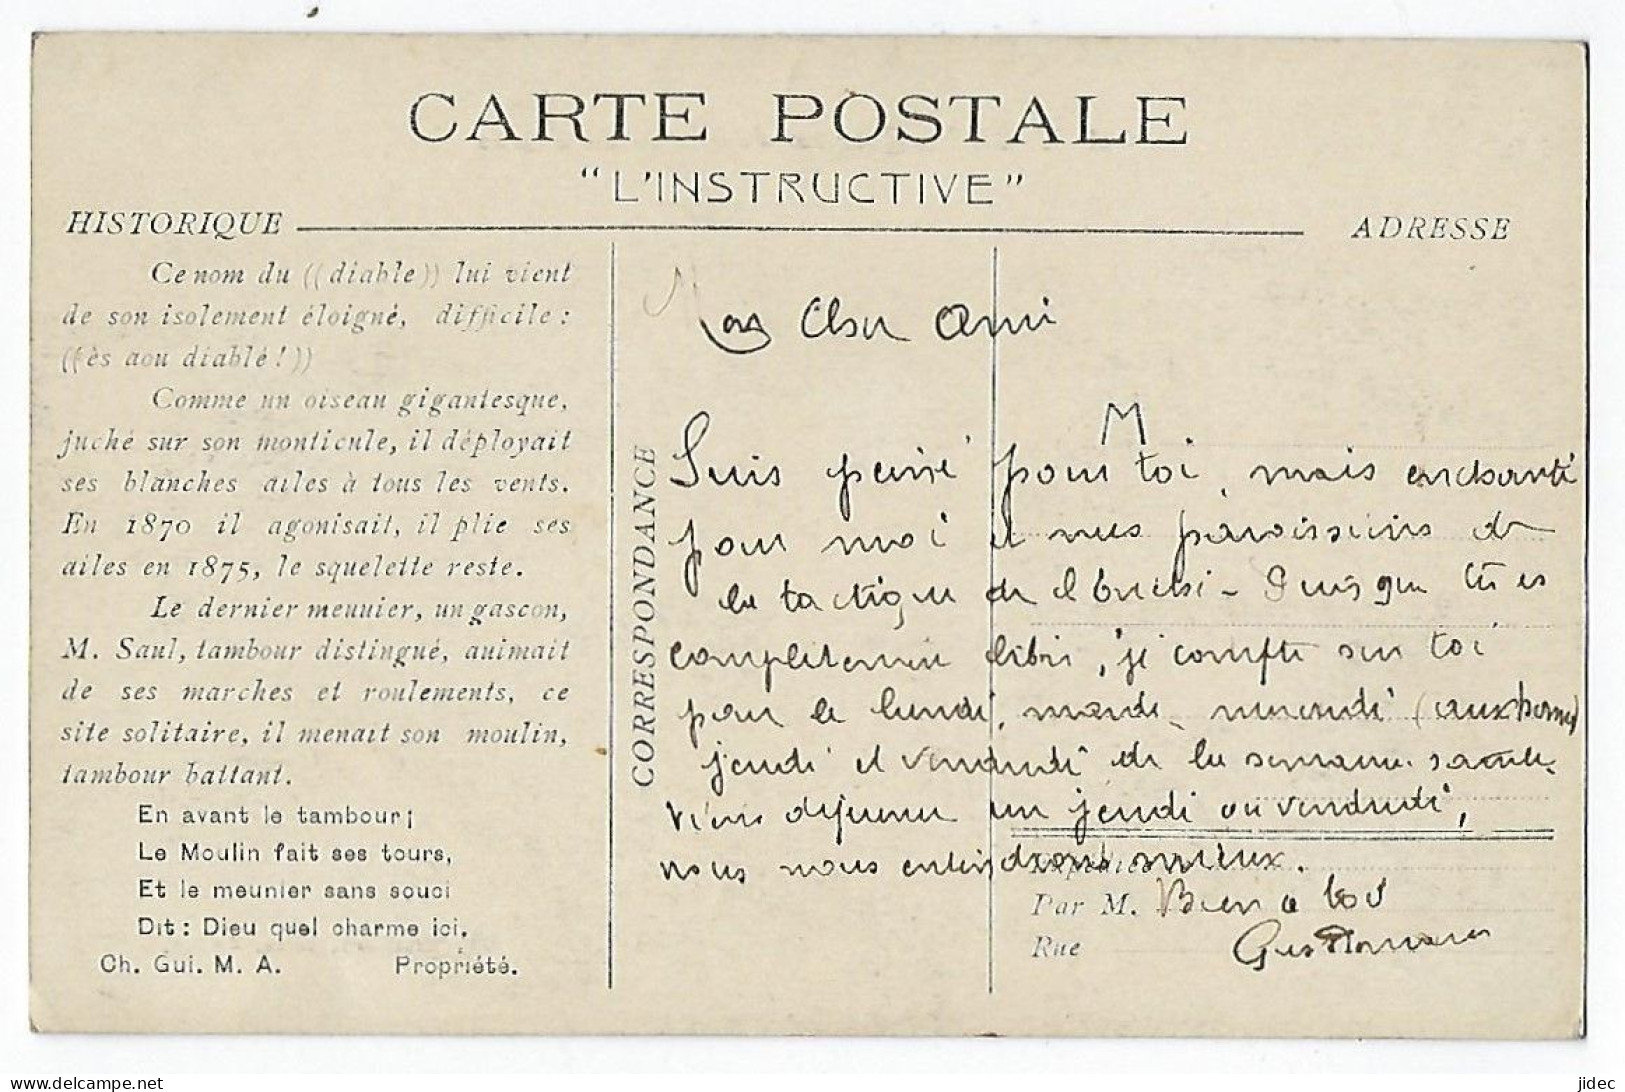 CARTE POSTALE
"L'INSTRUCTIVE"
HISTORIQUE
ADRESSE
Ce nom du ((diable)) lui vient
de son isolement éloigné, difficile :
((ès aou diablé!))
Comme un oiseau gigantesque,
juché sur son monticule, il déployait
ses blanches ailes à tous les vents.
En 1870 il agonisait, il plie ses
ailes en 1875, le squelette reste.
Le dernier meunier, un gascon,
M. Saul, tambour distingué, animait
de ses marches et roulements, ce
site solitaire, il menait son moulin,
tambour battant.
En avant le tambour;
Le Moulin fait ses tours,
Et le meunier sans souci
Dit : Dieu quel charme ici.
Ch. Gui. M. A. Propriété.
CORRESPONDANCE
Mon Cher Ami
M
Suis peiné pour toi, mais enchanté
pour moi et mes paroissiens de
la tactique de Puisque tu es
complètement libre, je compte sur toi
pour le lundi, mardi, mercredi
jeudi et vendredi de la semaine sainte.
Viens déjeuner un jeudi ou vendredi,
nous nous entendrons mieux.
Expédiée
Par M. Bien à toi
Rue
jidec